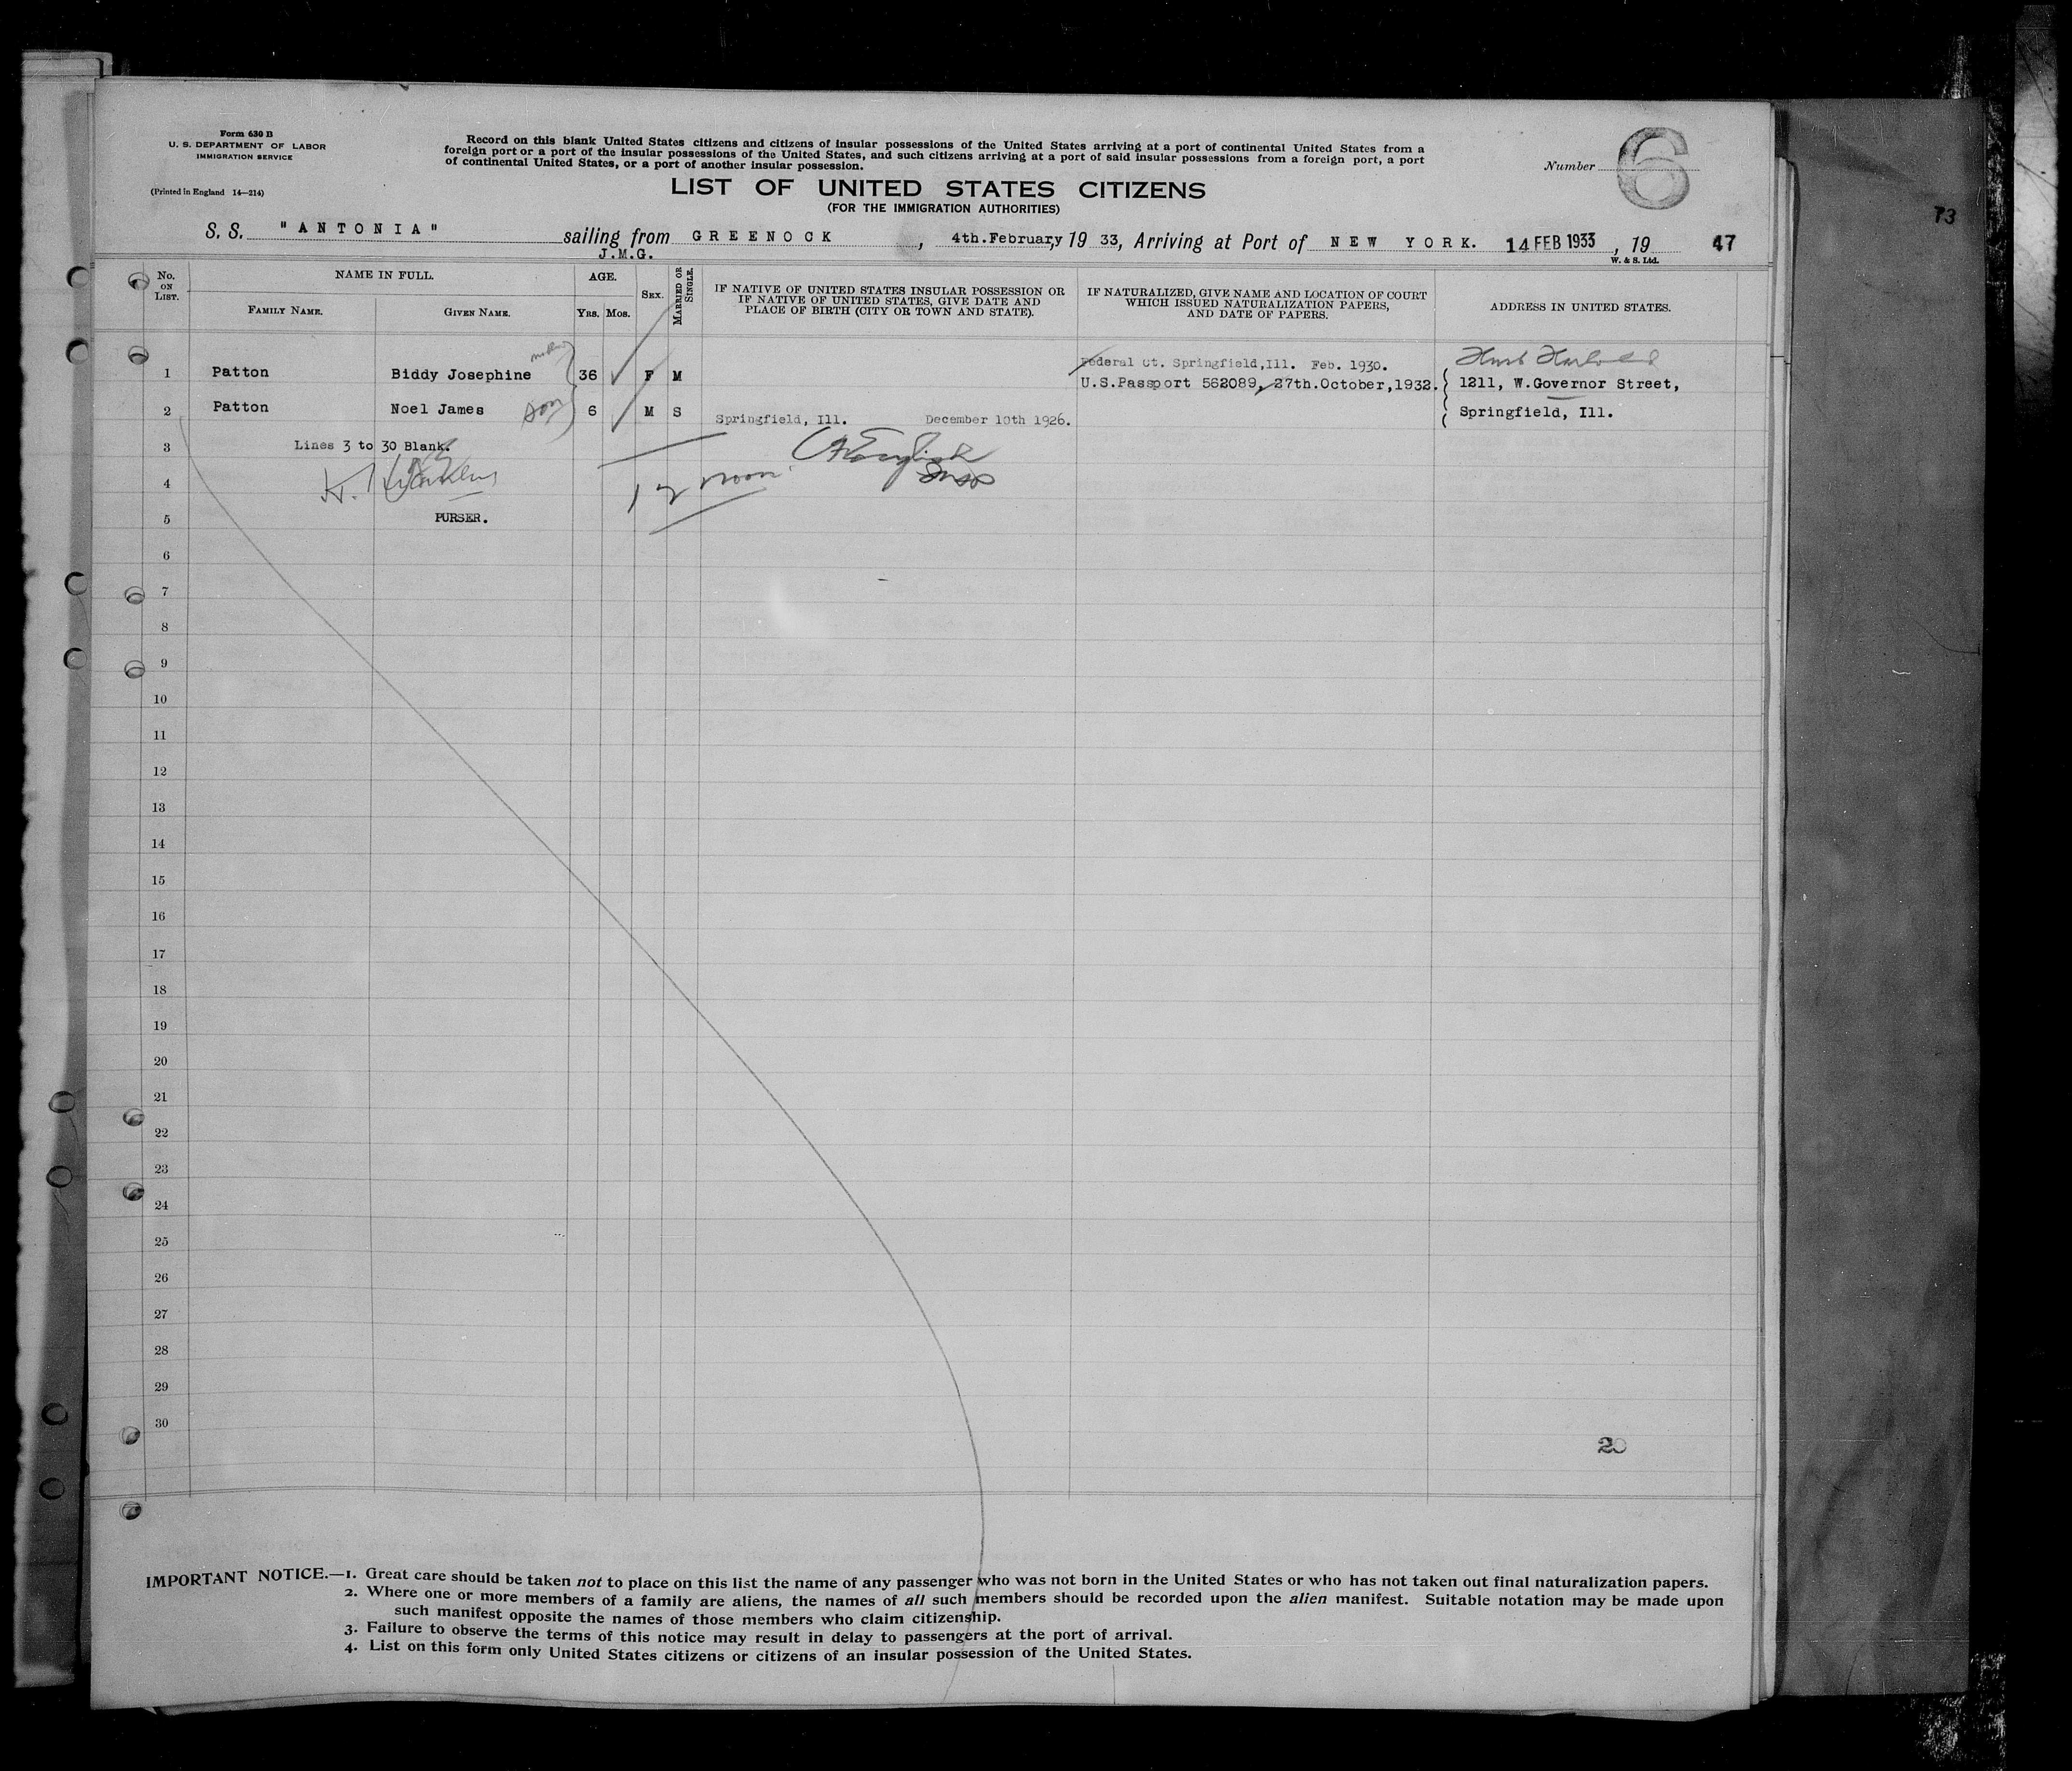 Form 630 B
U. S. DEPARTMENT OF LABOR
IMMIGRATION SERVICE
(Printed in England 14—214)
Record on this blank United States citizens and citizens of insular possessions of the United States arriving at a port of continental United States from a
foreign port or a port of the insular possessions of the United States, and such citizens arriving at a port of said insular possessions from a foreign port, a port
of continental United States, or a port of another insular possession.
Number 6
LIST OF UNITED STATES CITIZENS
(FOR THE IMMIGRATION AUTHORITIES)
73
S. S. "ANTONIA" sailing from GREENOCK, 4th.February, 19 33, Arriving at Port of NEW YORK. 14 FEB 1933, 19 47
J.M.G.
W. & S. Ltd.
No. ON LIST.
NAME IN FULL.
FAMILY NAME.
GIVEN NAME.
AGE.
Yrs. Mos.
SEX.
MARRIED OR SINGLE.
IF NATIVE OF UNITED STATES INSULAR POSSESSION OR
IF NATIVE OF UNITED STATES, GIVE DATE AND
PLACE OF BIRTH (CITY OR TOWN AND STATE).
IF NATURALIZED, GIVE NAME AND LOCATION OF COURT
WHICH ISSUED NATURALIZATION PAPERS,
AND DATE OF PAPERS.
ADDRESS IN UNITED STATES.
Federal Ct. Springfield,Ill. Feb. 1930.
1 Patton Biddy Josephine 36 F M U.S.Passport 562089, 27th.October,1932. 1211, W.Governor Street,
2 Patton Noel James son 6 M S Springfield, Ill. December 10th 1926. Springfield, Ill.
3 Lines 3 to 30 Blank.
4
5 PURSER.
6
7
8
9
10
11
12
13
14
15
16
17
18
19
20
21
22
23
24
25
26
27
28
29
30
20
IMPORTANT NOTICE.—1. Great care should be taken not to place on this list the name of any passenger who was not born in the United States or who has not taken out final naturalization papers.
2. Where one or more members of a family are aliens, the names of all such members should be recorded upon the alien manifest. Suitable notation may be made upon
such manifest opposite the names of those members who claim citizenship.
3. Failure to observe the terms of this notice may result in delay to passengers at the port of arrival.
4. List on this form only United States citizens or citizens of an insular possession of the United States.